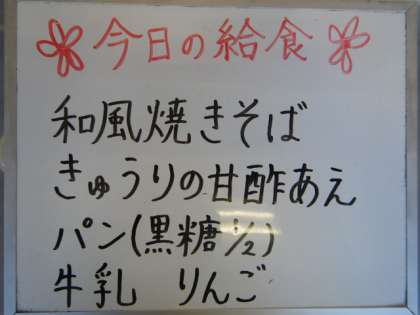 今日の給食
和風焼きそば
きゅうりの甘酢あえ
パン(黒糖1/2)
牛乳 りんご